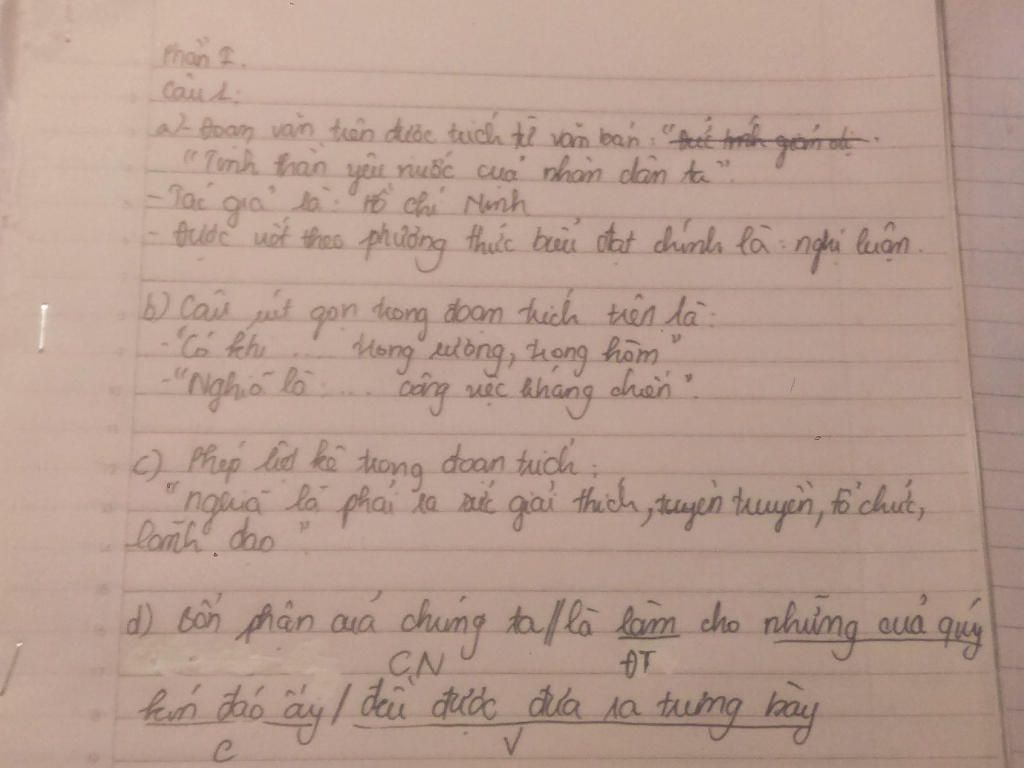 Phần I.
Câu 1:
a) - Đoạn văn trên được trích từ văn bản: "Đức tính giản dị.
"Tinh thần yêu nước của nhân dân ta".
- Tác giả là: Hồ Chí Minh
- Được viết theo phương thức biểu đạt chính là: nghị luận.
b) Câu rút gọn trong đoạn trích trên là:
- "Có khi .... trong rương, trong hòm"
- "Nghĩa là .... công việc kháng chiến".
c) Phép liệt kê trong đoạn trích:
"nghĩa là phải ra sức giải thích, tuyên truyền, tổ chức,
lãnh đạo"
d) Bổn phận của chúng ta // là làm cho những của quý
CN ĐT
kín đáo ấy / đều được đưa ra trưng bày
C V